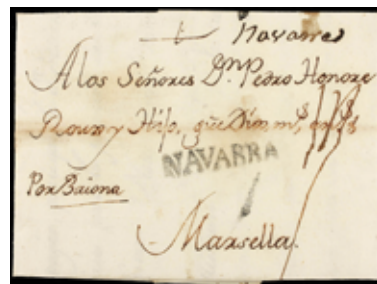 Navarre
A los Señores Dn. Pedro Honore
Roux y Hijo, que Dios ms. as.
NAVARRA
Por Baiona
Marsella.